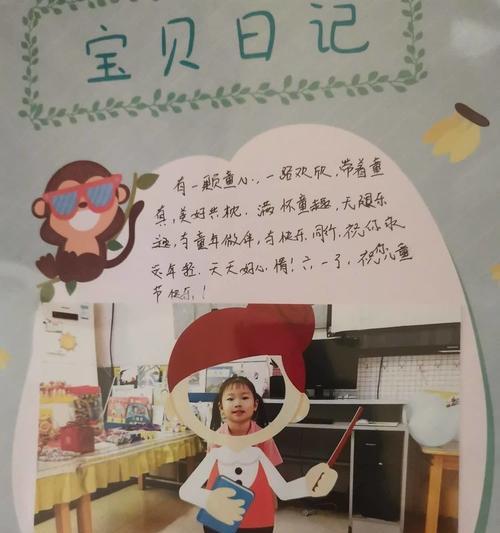 宝贝日记
有一颗童心,一路欢欣,带着童
真,美好共枕.满怀童趣,无限乐
趣,与童年做伴,与快乐同行,祝你永
远年轻.天天好心情!六一了,祝您儿童
节快乐!